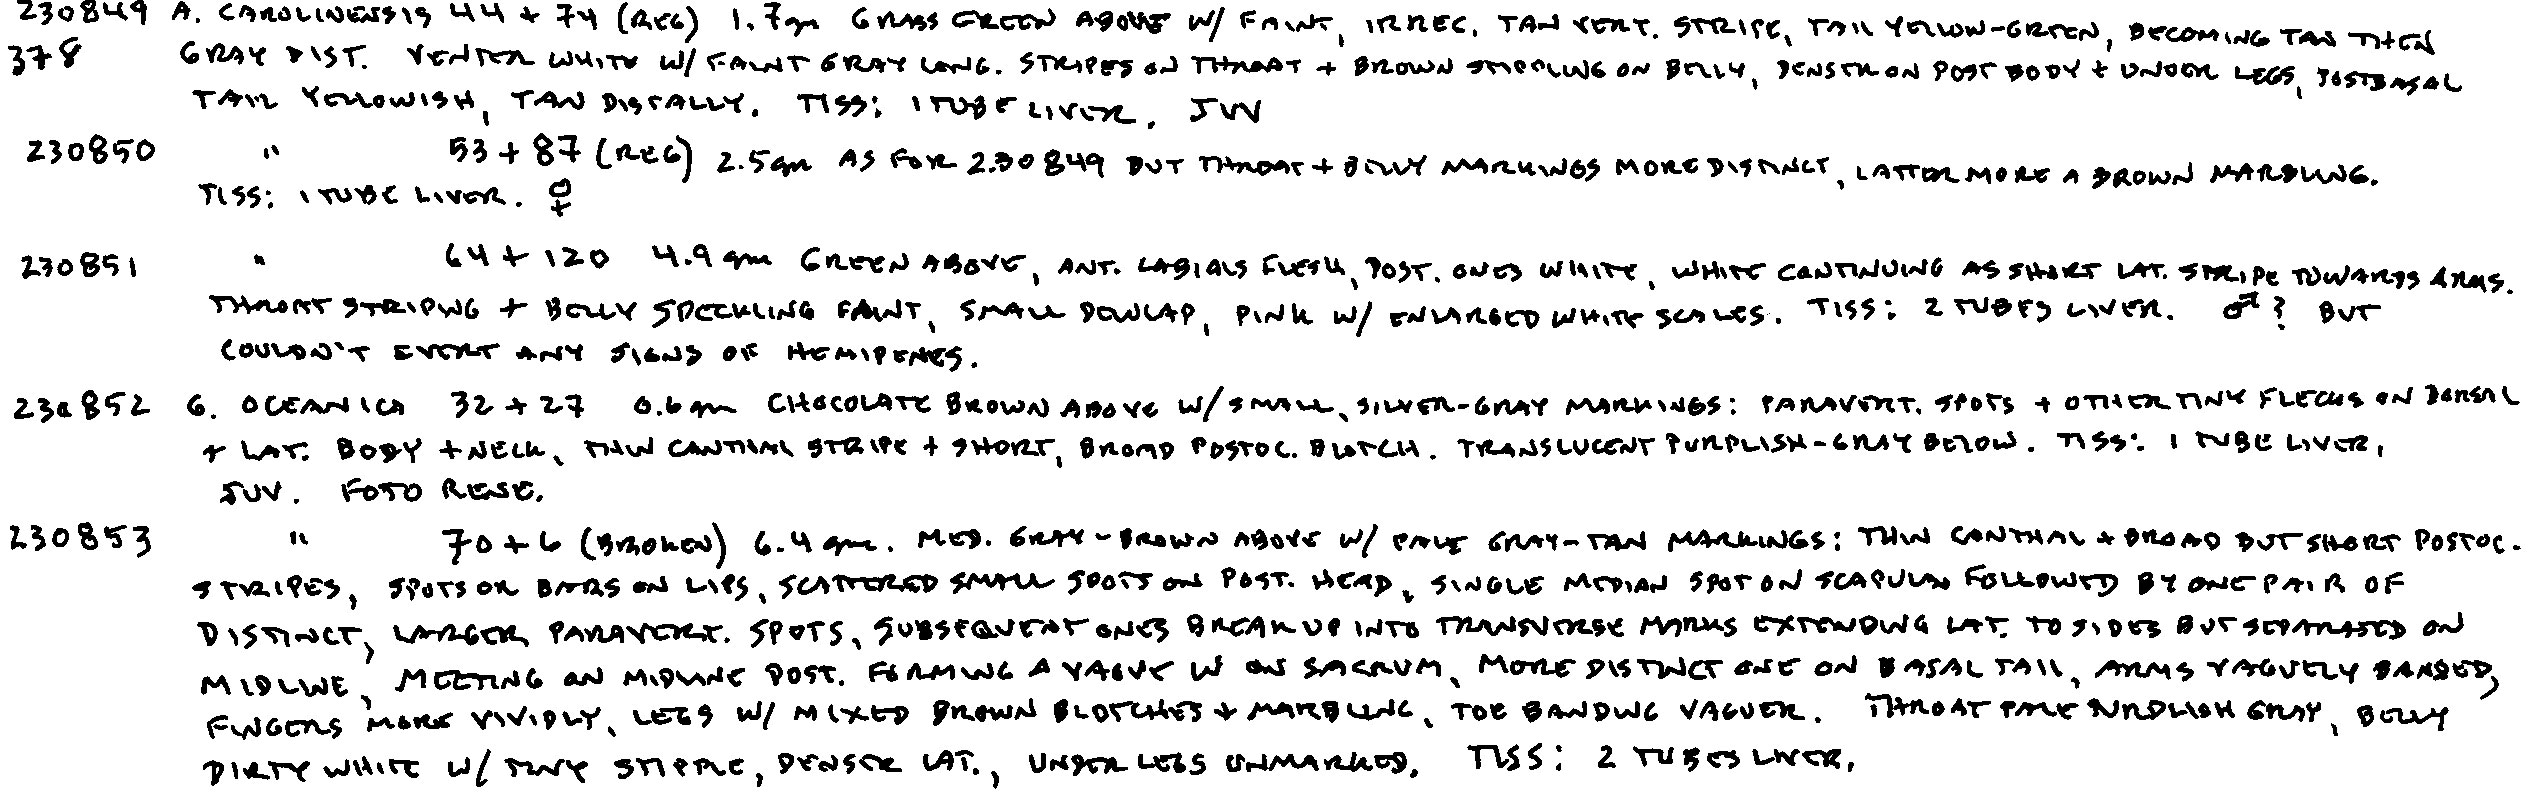 230849 A. CAROLINENSIS 44 + 74 (REG) 1.7gm GRASS GREEN ABOVE W/ FAINT, IRREG. TAN VERT. STRIPE, TAIL YELLOW-GREEN, BECOMING TAN THEN
378 GRAY DIST. VENTER WHITE W/ FAINT GRAY LONG. STRIPES ON THROAT + BROWN STIPPLING ON BELLY, DENSER ON POST BODY + UNDER LEGS, POSTBASAL
TAIL YELLOWISH, TAN DISTALLY. TISS: 1 TUBE LIVER. JUV
230850 " 53 + 87 (REG) 2.5gm AS FOR 230849 BUT THROAT + BELLY MARKINGS MORE DISTINCT, LATTER MORE A BROWN MARBLING.
TISS: 1 TUBE LIVER. ♀
230851 " 64 + 120 4.9 gm GREEN ABOVE, ANT. LABIALS FLESH, POST. ONES WHITE, WHITE CONTINUING AS SHORT LAT. STRIPE TOWARDS ARMS.
THROAT STRIPING + BELLY SPECKLING FAINT, SMALL DEWLAP, PINK W/ ENLARGED WHITE SCALES. TISS: 2 TUBES LIVER. ♂? BUT
COULDN'T EVERT ANY SIGNS OF HEMIPENES.
230852 G. OCEANICA 32 + 27 0.6 gm CHOCOLATE BROWN ABOVE W/ SMALL, SILVER-GRAY MARKINGS: PARAVERT. SPOTS + OTHER TINY FLECKS ON DORSAL
+ LAT. BODY + NECK, THIN CANTHAL STRIPE + SHORT, BROAD POSTOC. BLOTCH. TRANSLUCENT PURPLISH-GRAY BELOW. TISS: 1 TUBE LIVER,
JUV. FOTO RESE.
230853 " 70 + 6 (BROKEN) 6.4 gm. MED. GRAY-BROWN ABOVE W/ PALE GRAY-TAN MARKINGS: THIN CANTHAL + BROAD BUT SHORT POSTOC.
STRIPES, SPOTS OR BARS ON LIPS, SCATTERED SMALL SPOTS ON POST. HEAD, SINGLE MEDIAN SPOT ON SCAPULA FOLLOWED BY ONE PAIR OF
DISTINCT, LARGER PARAVERT. SPOTS, SUBSEQUENT ONES BREAK UP INTO TRANSVERSE MARKS EXTENDING LAT. TO SIDES BUT SEPARATED ON
MIDLINE, MEETING ON MIDLINE POST. FORMING A VAGUE W ON SACRUM, MORE DISTINCT ONE ON BASAL TAIL, ARMS VAGUELY BANDED,
FINGERS MORE VIVIDLY, LEGS W/ MIXED BROWN BLOTCHES + MARBLING, TOE BANDING VAGUER. THROAT PALE PURPLISH GRAY, BELLY
DIRTY WHITE W/ TINY STIPPLE, DENSER LAT., UNDER LEGS UNMARKED. TISS: 2 TUBES LIVER.